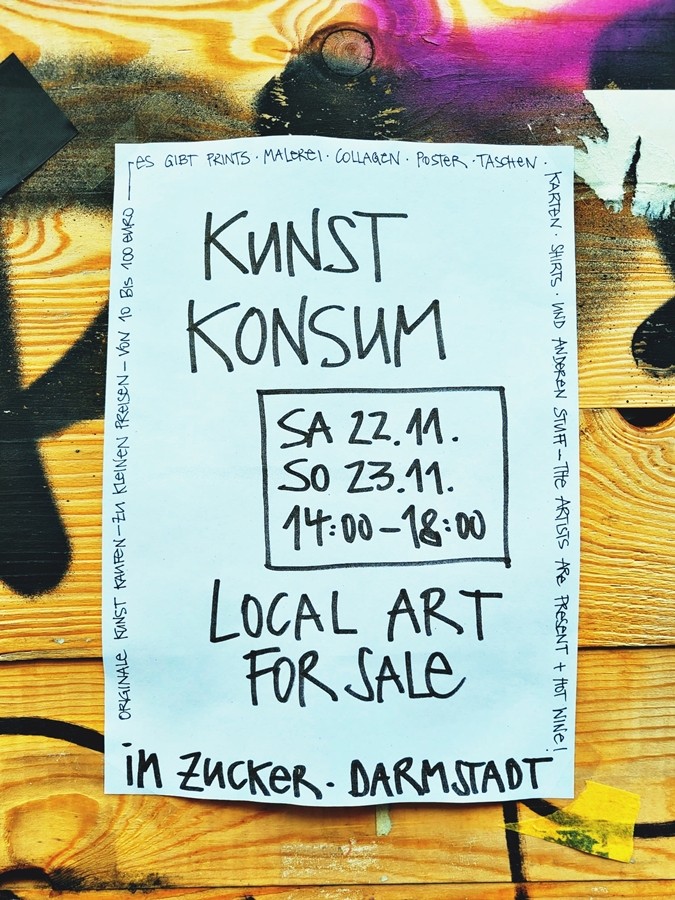 ORIGINALE KUNST KAUFEN – ZU KLEINEN PREISEN – VON 10 BIS 100 EURO –
ES GIBT PRINTS · MALEREI · COLLAGEN · POSTER · TASCHEN ·
KARTEN · SHIRTS · UND ANDEREN STUFF – THE ARTISTS ARE PRESENT + HOT WINE!
KUNST
KONSUM
SA 22.11.
SO 23.11.
14:00 – 18:00
LOCAL ART
FOR SALE
in ZUCKER · DARMSTADT